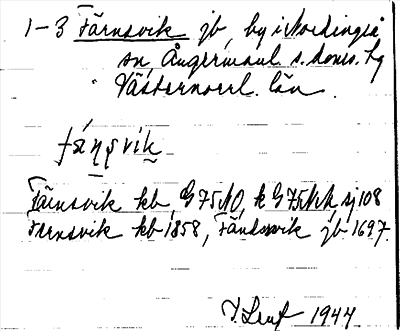 1-3 Färnsvik jb, by i Nordingrå
sn, Ångermanl. s. doms. hg
Västernorrl. län.
fä́ṇṣvik
Färnsvik kb, G75NO, k G75NÄ, sj 108
Färnsvik kb 1858, Fändsvik jb 1697.
1944